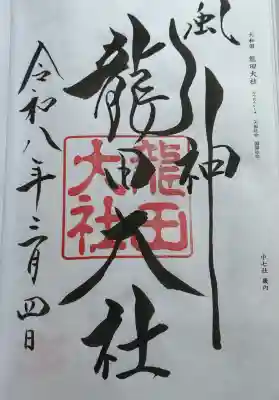 大和国 龍田大社
小七社 畿内
風神
龍田大社
龍田大社
令和八年三月四日